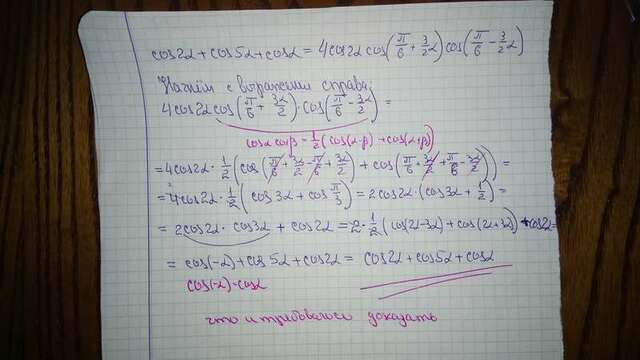 cos2α + cos5α + cosα = 4cos2α cos(π/6 + 3/2α) cos(π/6 − 3/2α)
Начнём с выражения справа
4cos2α cos(π/6 + 3α/2) cos(π/6 − 3α/2) =
cosα cosβ = 1/2(cos(α-β) + cos(α+β))
= 4cos2α · 1/2 (cos(π/6 + 3α/2 − π/6 + 3α/2) + cos(π/6 + 3α/2 + π/6 − 3α/2)) =
= 4cos2α · 1/2 (cos3α + cos π/3) = 2cos2α (cos3α + 1/2) =
= 2cos2α · cos3α + cos2α = 2 · 1/2 (cos(2α−3α) + cos(2α+3α)) + cos2α =
= cos(−α) + cos5α + cos2α = cos2α + cos5α + cosα
cos(−α) = cosα
что и требовалось доказать